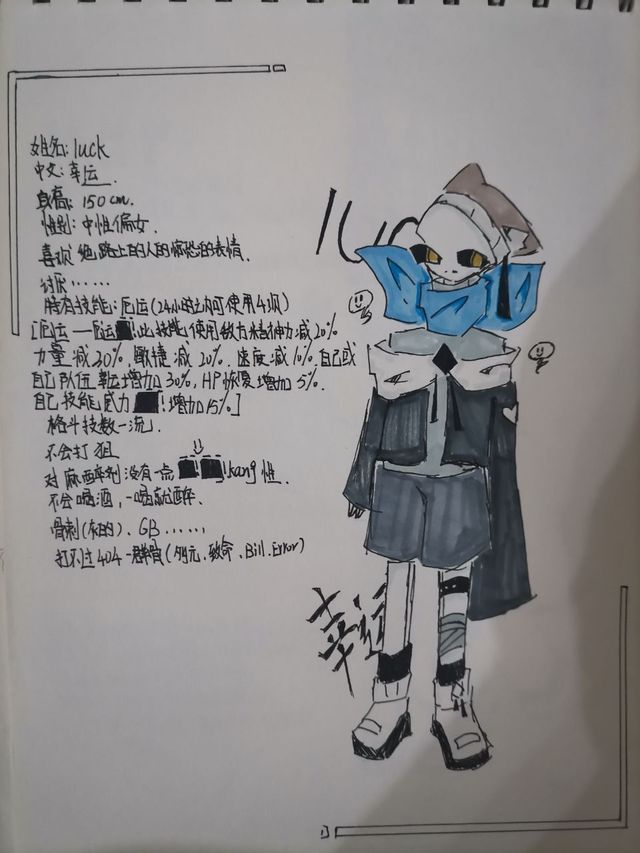 姓名: luck
中文: 幸运.
身高: 150 cm.
性别: 中性偏女.
喜欢 绝路上的人的惊恐的表情.
讨厌 ······
特有技能: 厄运(24小时之内可使用4次)
[厄运 — 厄运 ! 此技能使用敌方精神力减20%
力量减30%, 敏捷减20%, 速度减10%, 自己或
自己队伍 幸运增加30%, HP恢复增加5%.
自己技能威力 ! 增加15%]
格斗技数一流.
不会打狙
对麻醉剂没有一点 ! ! kang性.
不会喝酒, 一喝就醉.
骨刺(灰的)、GB ······
打不过404一群骨( 、致命、Bill.Error)
luc
幸运